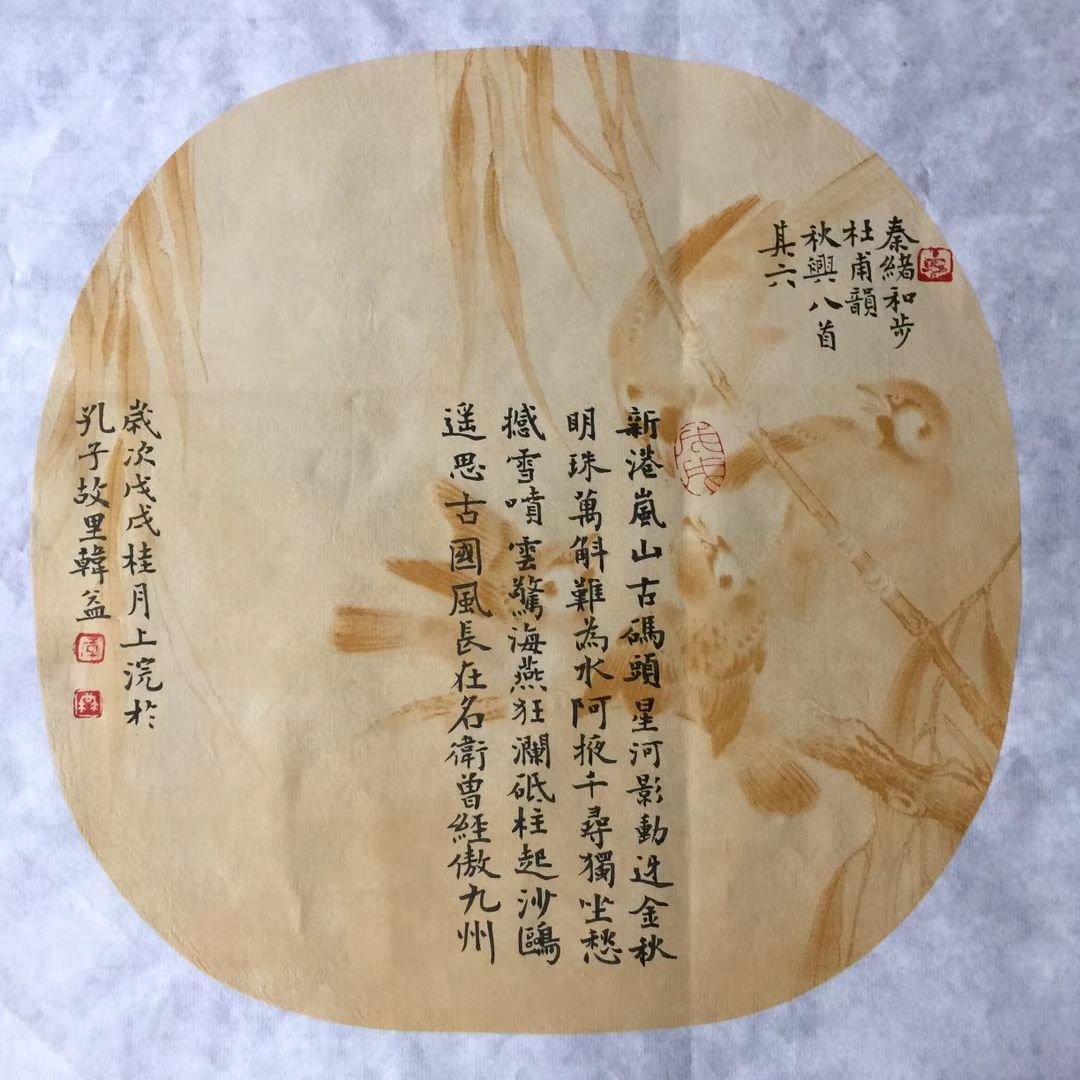 秦緒和步
杜甫韻
秋興八首
其六
新港嵐山古碼頭星河影動迓金秋
明珠萬斛難為水阿掖千尋獨坐愁
撼雪噴雲驚海燕狂瀾砥柱起沙鷗
遥思古國風長在名衛曾經傲九州
歲次戊戌桂月上浣於
孔子故里韓益
戊戌